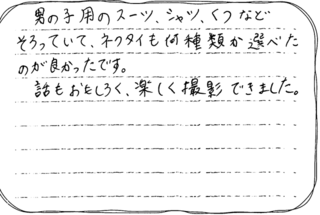 男の子用のスーツ、シャツ、くつなど
そろっていて、ネクタイも何種類か選べた
のが良かったです。
話もおもしろく、楽しく撮影できました。